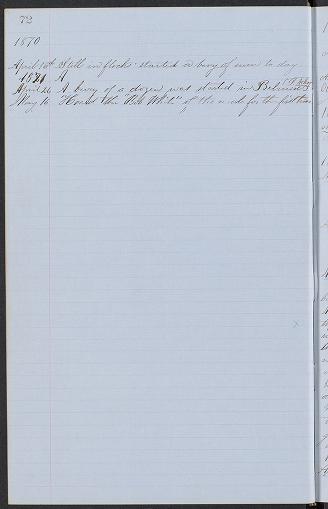 72
1870
April 10th Still in flocks. started a bevy of seven to day
1871
April 26 A bevy of a dozen was started in Belmont
May 10 Heard the "Bob White" of the male for the first time